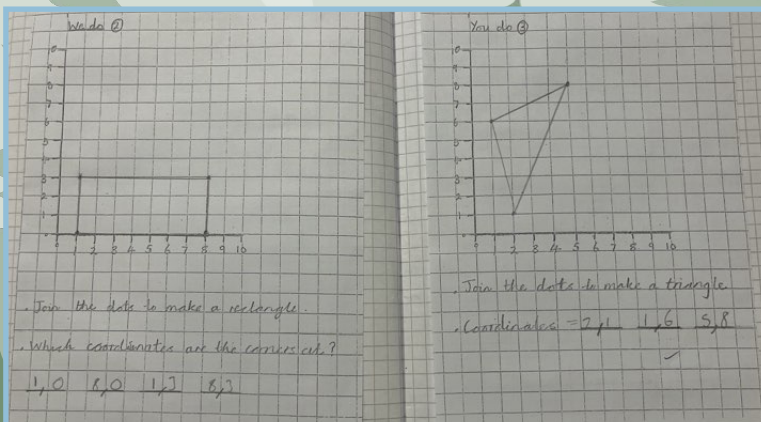 We do ②
10
9
8
7
6
5
4
3
2
1
0
0 1 2 3 4 5 6 7 8 9 10
. Join the dots to make a rectangle.
. Which coordinates are the corners at?
1,0 8,0 1,3 8,3
You do ③
10
9
8
7
6
5
4
3
2
1
0 1 2 3 4 5 6 7 8 9 10
. Join the dots to make a triangle
. Coordinates = 2,1 1,6 5,8